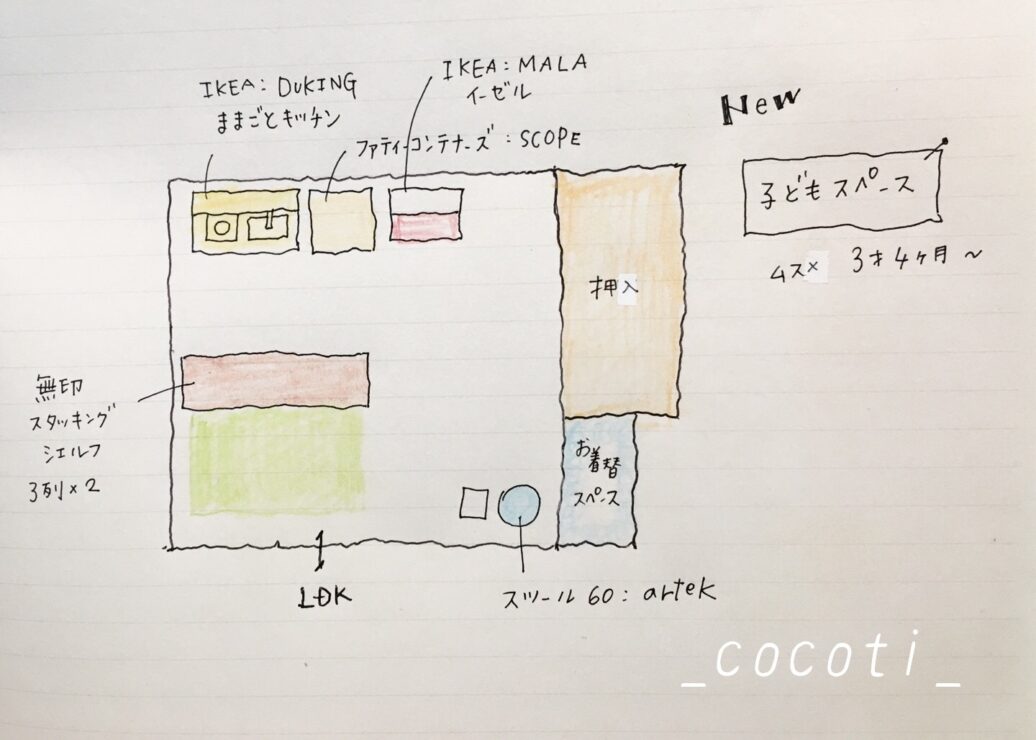 IKEA: DUKING
ままごとキッチン
IKEA: MALA
イーゼル
ファティーコンテナーズ: SCOPE
New
子どもスペース
ムス× 3才4ヶ月〜
押入
無印
スタッキング
シェルフ
3列×2
お着替
スペース
LDK
スツール60: artek
_cocoti_